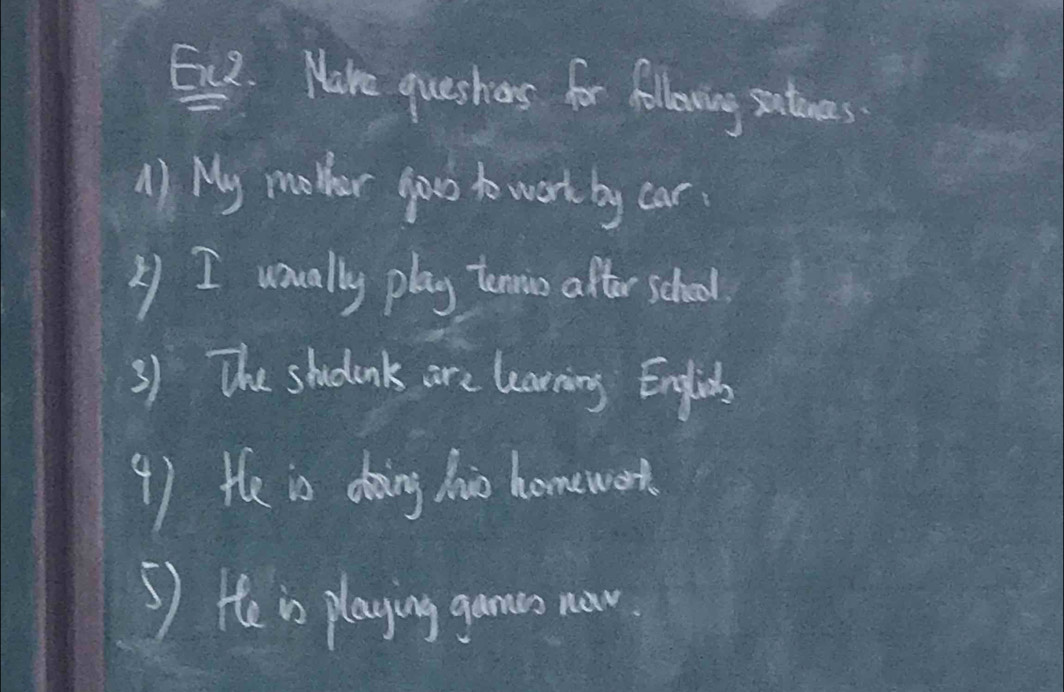 Ex2. Make questions for following sentences.
1) My mother goes to work by car.
2) I usually play tennis after school.
3) The students are learning English
4) He is doing his homework.
5) He is playing games now.